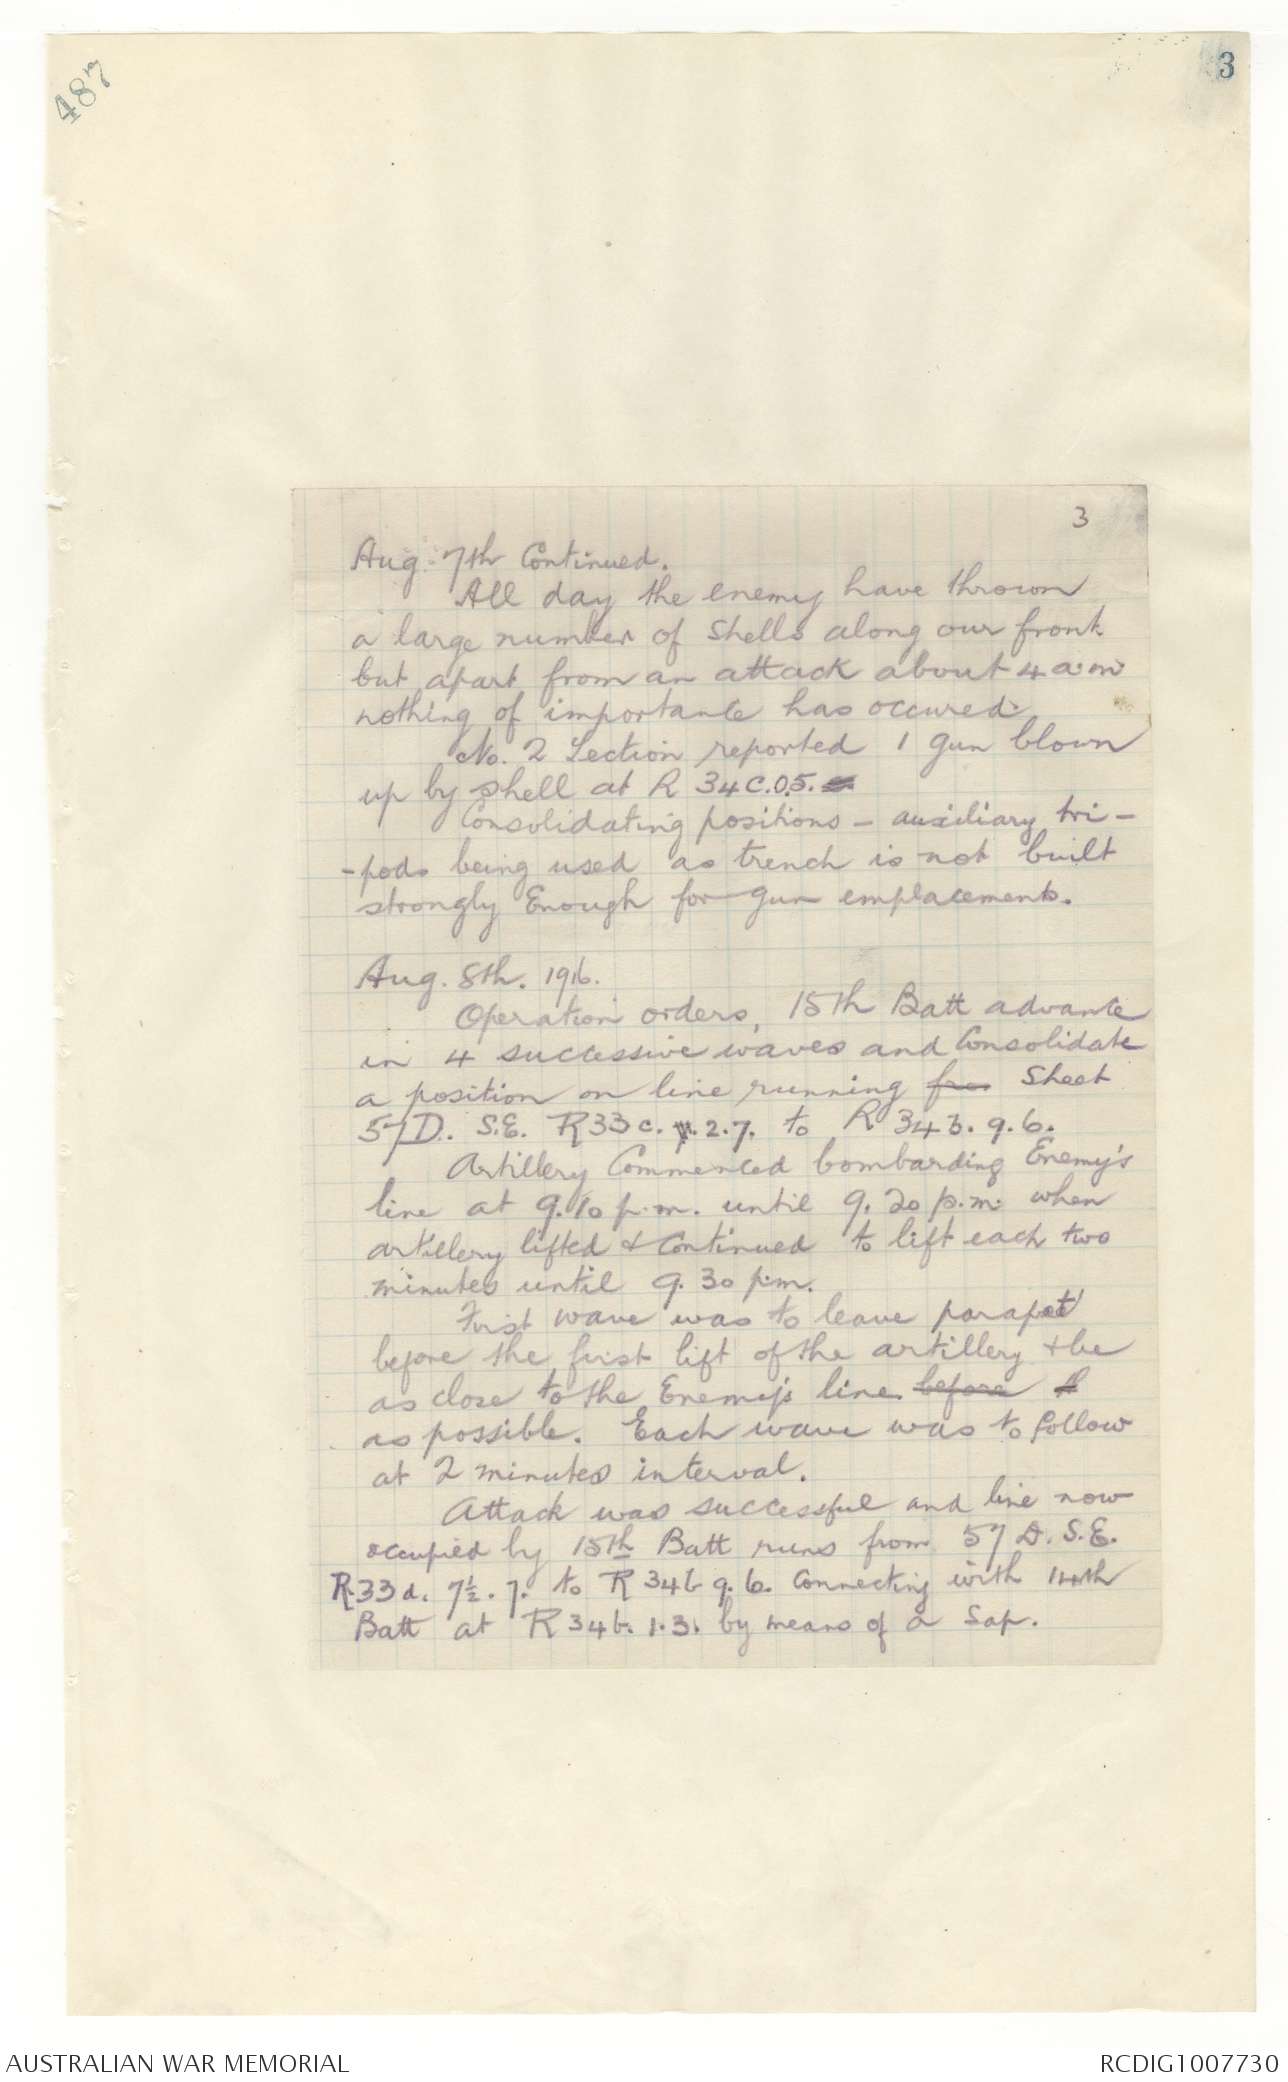 487
3
3
Aug. 7th Continued.
All day the enemy have thrown
a large number of shells along our front
but apart from an attack about 4 a.m.
nothing of importance has occured.
No. 2 Section reported 1 gun blown
up by shell at R 34 C.0.5.
Consolidating positions - auxiliary tri-
-pods being used as trench is not built
strongly Enough for gun emplacements.
Aug. 8th. 1916.
Operation orders, 15th Batt advance
in 4 successive waves and Consolidate
a position on line running fro Sheet
57D. S.E. R33c. 2.7. to R 34 b. 9.6.
Artillery Commenced bombarding Enemy's
line at 9.10 p.m. until 9.20 p.m. when
artillery lifted & Continued to lift each two
minutes until 9.30 p.m.
First wave was to leave parapet
before the first lift of the artillery & be
as close to the Enemy's line before
as possible. Each wave was to follow
at 2 minutes interval.
Attack was successful and line now
occupied by 15th Batt runs from 57 D. S.E.
R.33 d. 7½.7. to R 34b 9.6. Connecting with 14th
Batt at R 34b. 1.3. by means of a Sap.
AUSTRALIAN WAR MEMORIAL
RCDIG1007730